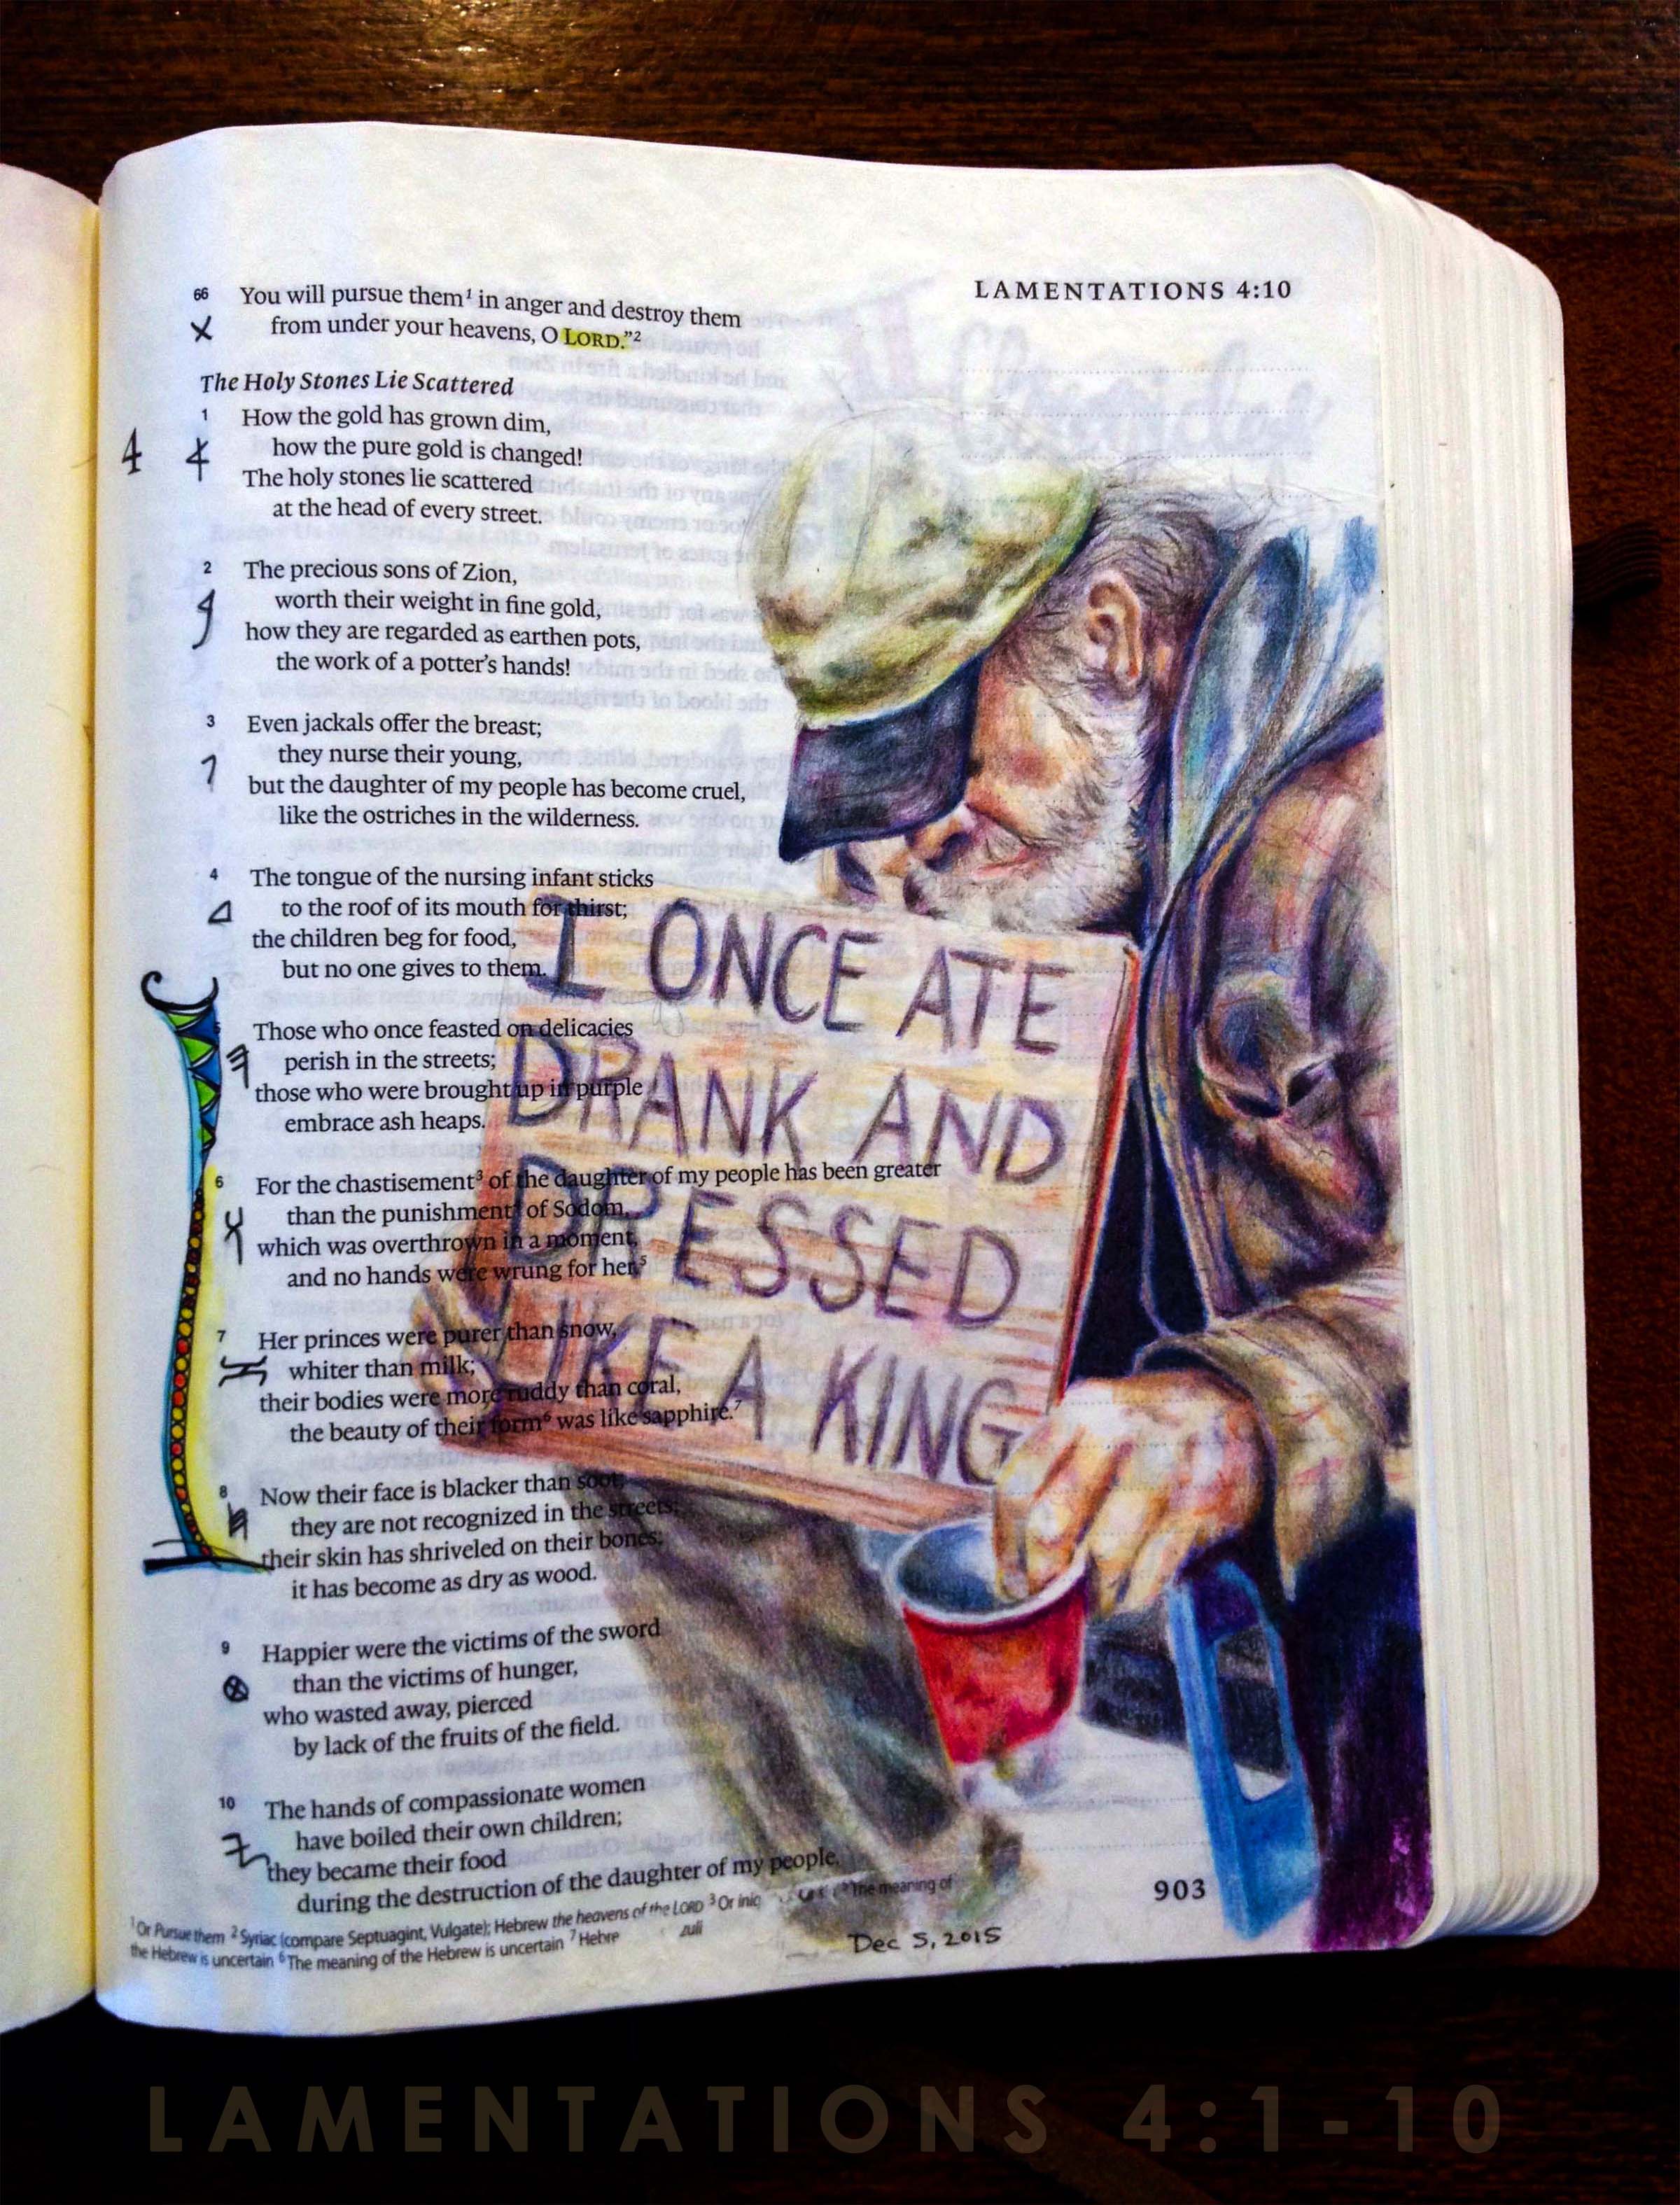 LAMENTATIONS 4:10
66 You will pursue them¹ in anger and destroy them
from under your heavens, O LORD.”²
The Holy Stones Lie Scattered
4
1 How the gold has grown dim,
how the pure gold is changed!
The holy stones lie scattered
at the head of every street.
2 The precious sons of Zion,
worth their weight in fine gold,
how they are regarded as earthen pots,
the work of a potter’s hands!
3 Even jackals offer the breast;
they nurse their young,
but the daughter of my people has become cruel,
like the ostriches in the wilderness.
4 The tongue of the nursing infant sticks
to the roof of its mouth for thirst;
the children beg for food,
but no one gives to them.
5 Those who once feasted on delicacies
perish in the streets;
those who were brought up in purple
embrace ash heaps.
6 For the chastisement³ of the daughter of my people has been greater
than the punishment of Sodom,
which was overthrown in a moment,
and no hands were wrung for her.⁵
7 Her princes were purer than snow,
whiter than milk;
their bodies were more ruddy than coral,
the beauty of their form⁶ was like sapphire.⁷
8 Now their face is blacker than soot;
they are not recognized in the streets;
their skin has shriveled on their bones;
it has become as dry as wood.
9 Happier were the victims of the sword
than the victims of hunger,
who wasted away, pierced
by lack of the fruits of the field.
10 The hands of compassionate women
have boiled their own children;
they became their food
during the destruction of the daughter of my people.
I ONCE ATE
DRANK AND
DRESSED
LIKE A KING
¹Or Pursue them ²Syriac (compare Septuagint, Vulgate); Hebrew the heavens of the LORD ³Or The meaning of
the Hebrew is uncertain ⁶The meaning of the Hebrew is uncertain ⁷
903
Dec 5, 2015
LAMENTATIONS 4:1-10